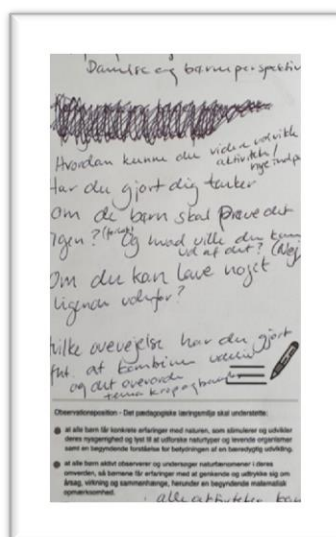 Dannelse og børneperspektiv
Hvordan kunne du videre udvikle
aktiviteten/
nye indp
Har du gjort dig tanker
om de børn skal prøve det
igen? Og hvad ville du
ud af det? (Nej
Om du kan lave noget
lignende udenfor?
hvilke overvejelse har du gjort
fht. at kombinere
og det overordn
tema krop og
Observationsposition - Det pædagogiske læringsmiljø skal understøtte:
at alle børn får konkrete erfaringer med naturen, som stimulerer og udvikler
deres nysgerrighed og lyst til at udforske naturtyper og levende organismer
samt en begyndende forståelse for betydningen af en bæredygtig udvikling.
at alle børn aktivt observerer og undersøger naturfænomener i deres
omverden, så børnene får erfaringer med at genkende og udtrykke sig om
årsag, virkning og sammenhænge, herunder en begyndende matematisk
opmærksomhed.
alle aktiviteter kan